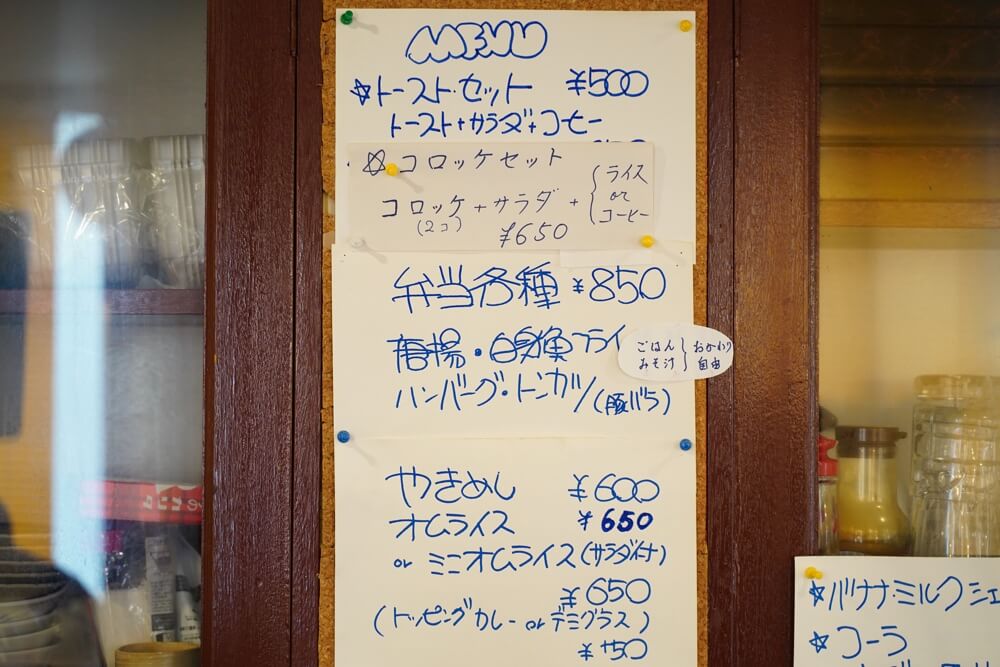 MENU
☆トースト・セット ¥500
トースト+サラダ+コーヒー
☆コロッケセット
コロッケ+サラダ+{ライス
or
コーヒー
(2コ)
¥650
弁当各種 ¥850
唐揚・白身魚フライ
ハンバーグ・トンカツ(豚バラ)
ごはん}おかわり
みそ汁 自由
やきめし ¥600
オムライス ¥650
or ミニオムライス(サラダ付)
¥650
(トッピングカレー or デミグラス)
¥+50
☆バナナ・ミルクシェ
☆コーラ